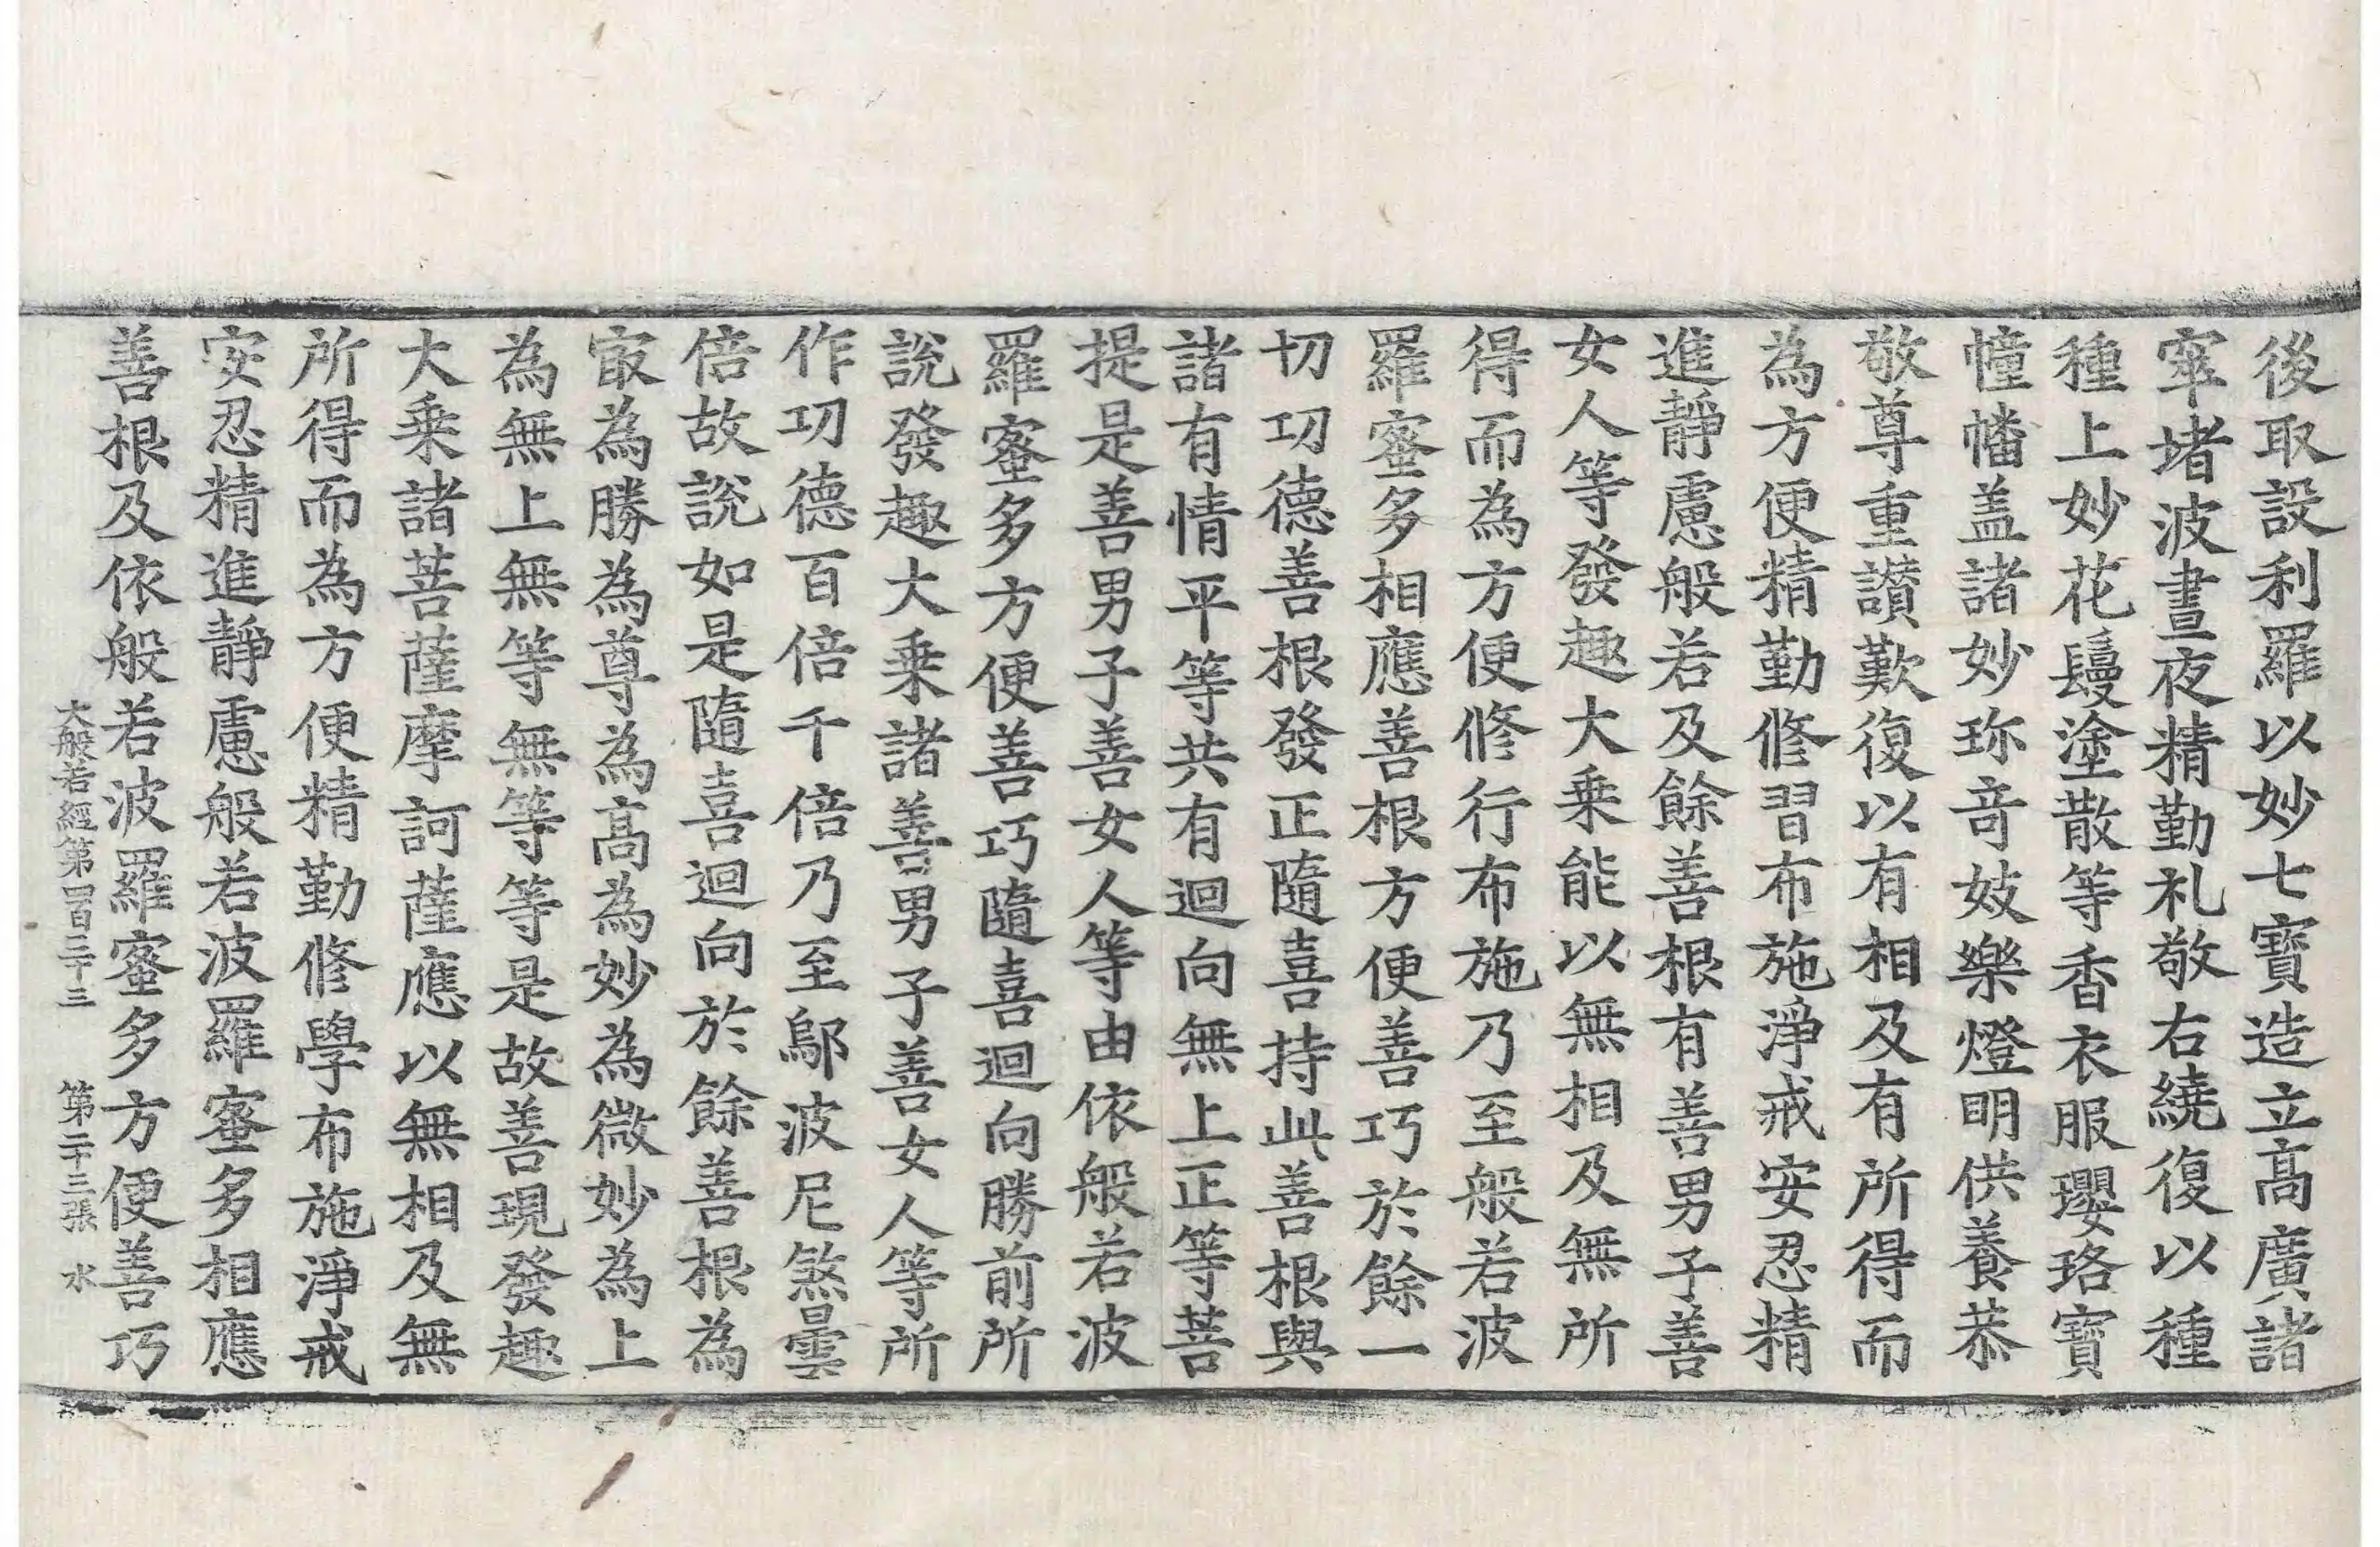 後取設利羅以妙七寶造立髙廣諸
窣堵波晝夜精勤礼敬右繞復以種
種上妙花鬘塗散等香衣服瓔珞寶
幢幡盖諸妙珎竒妓樂燈明供養恭
敬尊重讃歎復以有相及有所得而
為方便精勤修習布施淨戒安忍精
進靜慮般若及餘善根有善男子善
女人等發趣大乗能以無相及無所
得而為方便修行布施乃至般若波
羅蜜多相應善根方便善巧於餘一
切㓛德善根發正隨喜持此善根與
諸有情平等共有迴向無上正等菩
提是善男子善女人等由依般若波
羅蜜多方便善巧隨喜迴向勝前所
說發趣大乗諸善男子善女人等所
作㓛德百倍千倍乃至鄔波尼煞曇
倍故說如是隨喜迴向於餘善根為
㝡為勝為尊為髙為妙為微妙為上
為無上無等無等等是故善現發趣
大乗諸菩薩摩訶薩應以無相及無
所得而為方便精勤修學布施淨戒
安忍精進靜慮般若波羅蜜多相應
善根及依般若波羅蜜多方便善巧
大般若經第四百三十三 第二十三張 水